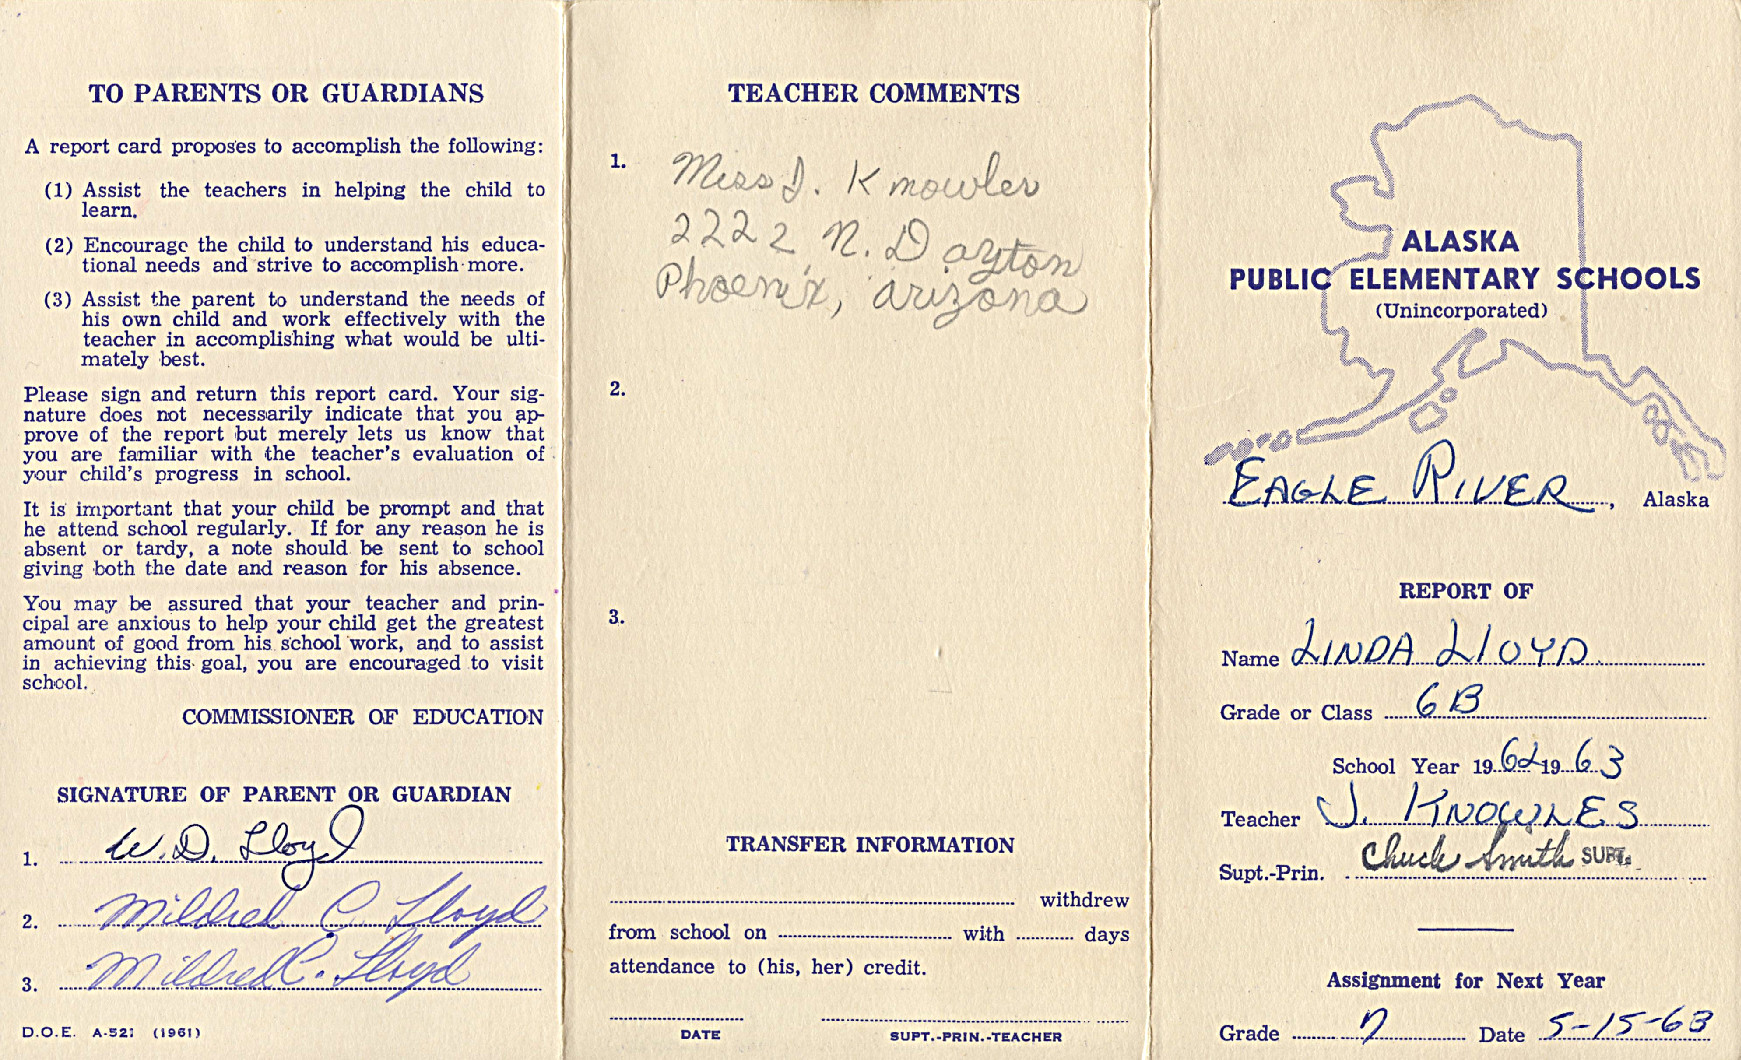 TO PARENTS OR GUARDIANS
A report card proposes to accomplish the following:
(1) Assist the teachers in helping the child to
learn.
(2) Encourage the child to understand his educa-
tional needs and strive to accomplish more.
(3) Assist the parent to understand the needs of
his own child and work effectively with the
teacher in accomplishing what would be ulti-
mately best.
Please sign and return this report card. Your sig-
nature does not necessarily indicate that you ap-
prove of the report but merely lets us know that
you are familiar with the teacher's evaluation of
your child's progress in school.
It is important that your child be prompt and that
he attend school regularly. If for any reason he is
absent or tardy, a note should be sent to school
giving both the date and reason for his absence.
You may be assured that your teacher and prin-
cipal are anxious to help your child get the greatest
amount of good from his school work, and to assist
in achieving this goal, you are encouraged to visit
school.
COMMISSIONER OF EDUCATION
SIGNATURE OF PARENT OR GUARDIAN
1. W. D. Lloyd
2. Mildred C. Lloyd
3. Mildred C. Lloyd
D.O.E. A-521 (1961)
TEACHER COMMENTS
1. Miss J. Knowles
2222 N. Dayton
Phoenix, Arizona
2.
3.
TRANSFER INFORMATION
withdrew
from school on with days
attendance to (his, her) credit.
DATE SUPT.-PRIN.-TEACHER
ALASKA
PUBLIC ELEMENTARY SCHOOLS
(Unincorporated)
EAGLE RIVER, Alaska
REPORT OF
Name LINDA LLOYD
Grade or Class 6B
School Year 1962 1963
Teacher J. KNOWLES
Supt.-Prin. Chuck Smith SUPT.
Assignment for Next Year
Grade 7 Date 5-15-63